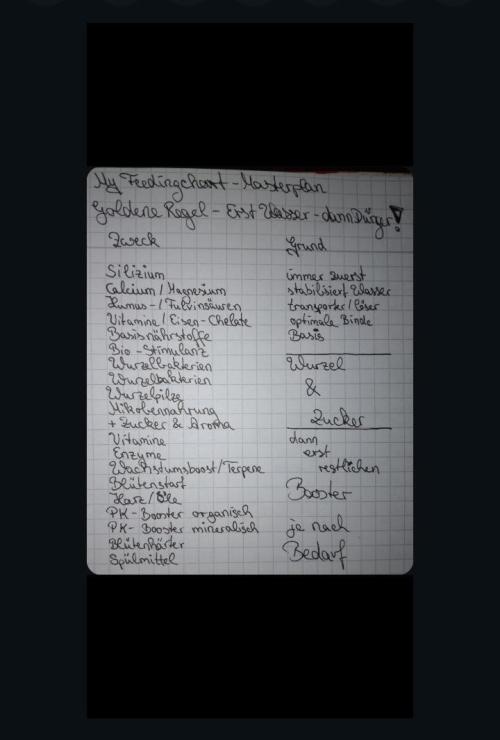 My Feedingchart - Masterplan
Goldene Regel - Erst Wasser - dann Dünger!
Zweck Grund
Silizium immer zuerst
Calcium / Magnesium stabilisiert Wasser
Humus- / Fulvinsäuren transporter / löser
Vitamine / Eisen-Chelate optimale Binde
Basisnährstoffe Basis
Bio-Stimulanz
Wurzelbakterien Wurzel
Wurzelbakterien &
Wurzelpilze
Mikobennahrung
+ Zucker & Aroma Zucker
Vitamine dann
Enzyme erst
Wachstumsboost/Terpene restlichen
Blütenstart
Harz/Öle Booster
PK-Booster organisch
PK-Booster mineralisch je nach
Blütenhärter
Spülmittel Bedarf